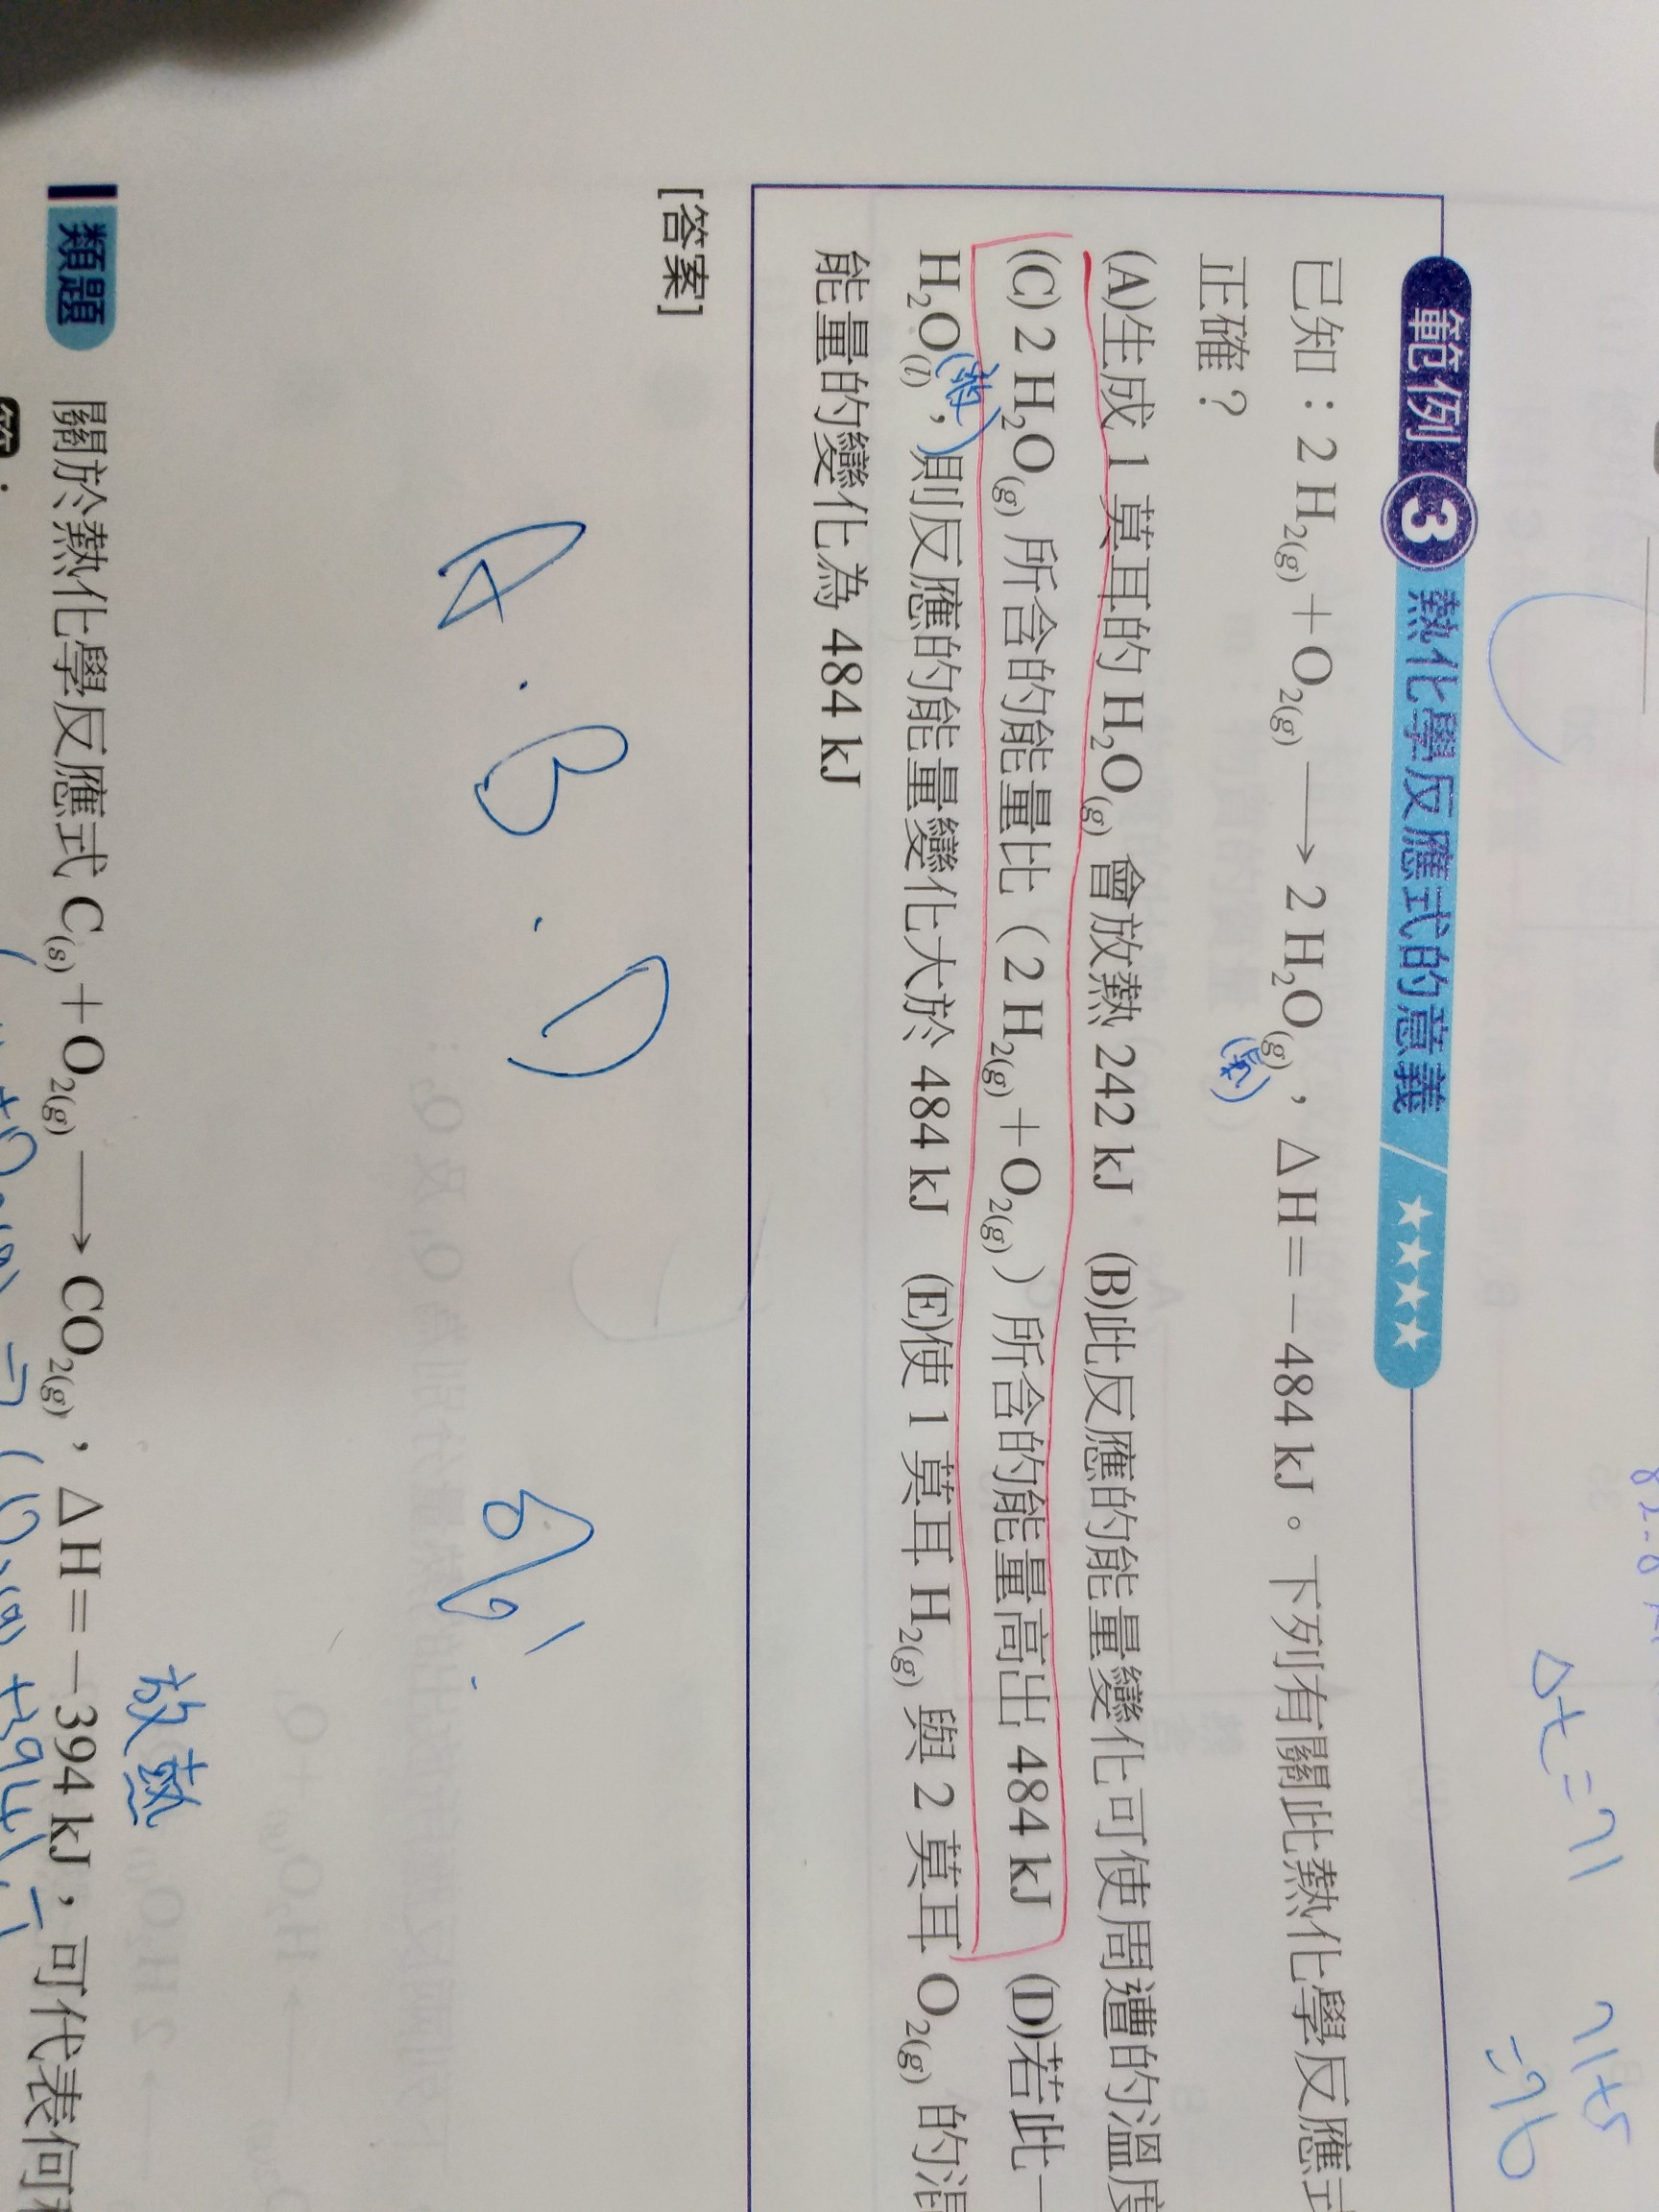 範例 3 熱化學反應式的意義 ★★★★
已知：2 H₂(g)＋O₂(g) ⟶ 2 H₂O(g)，△H＝－484 kJ。下列有關此熱化學反應式
(氣)
正確？
(A)生成 1 莫耳的 H₂O(g) 會放熱 242 kJ (B)此反應的能量變化可使周遭的溫度
(C) 2 H₂O(g) 所含的能量比（2 H₂(g)＋O₂(g)）所含的能量高出 484 kJ (D)若此一
H₂O(l)，則反應的能量變化大於 484 kJ (E)使 1 莫耳 H₂(g) 與 2 莫耳 O₂(g) 的混
能量的變化為 484 kJ
[答案]
A．B．D
類題
放熱
關於熱化學反應式 C(s)＋O₂(g) ⟶ CO₂(g)，△H＝－394 kJ，可代表何
Δt=71
71+5
=76